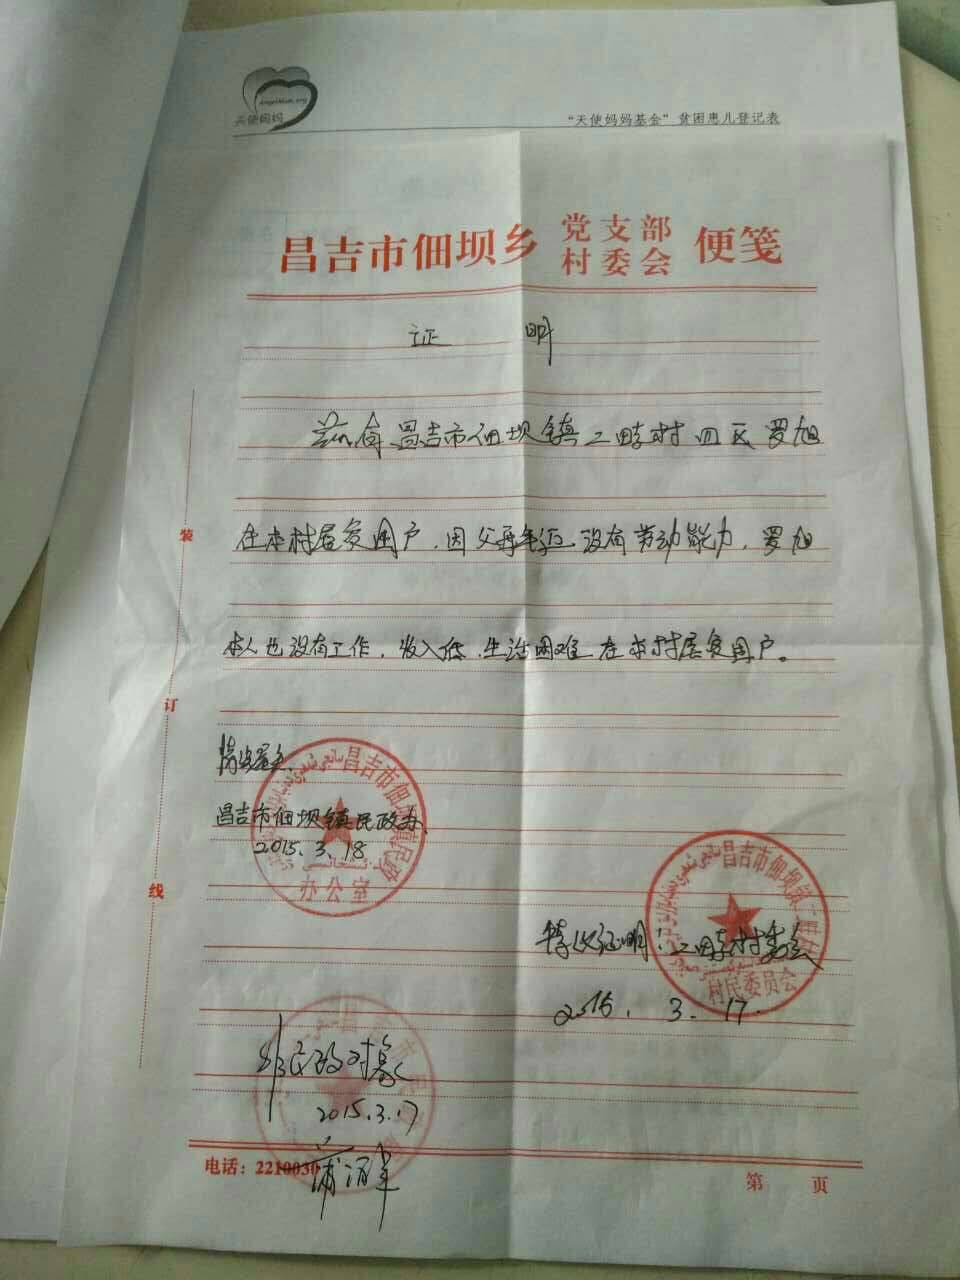 AngelMom.org
天使妈妈
“天使妈妈基金”贫困患儿登记表
昌吉市佃坝乡 党支部 村委会 便笺
证 明
兹有昌吉市佃坝镇二畦村四区罗旭
在本村居贫困户,因父母年迈,没有劳动能力,罗旭
本人也没有工作,收入低,生活困难在本村居贫困户。
装
订
线
情况属实
昌吉市佃坝镇民政办
2015.3.18
昌吉市佃坝镇民政
办公室
特此证明:二畦村村委会
2015.3.17.
昌吉市佃坝镇二畦村
村民委员会
非民政对象
2015.3.17
电话:2210030
第 页